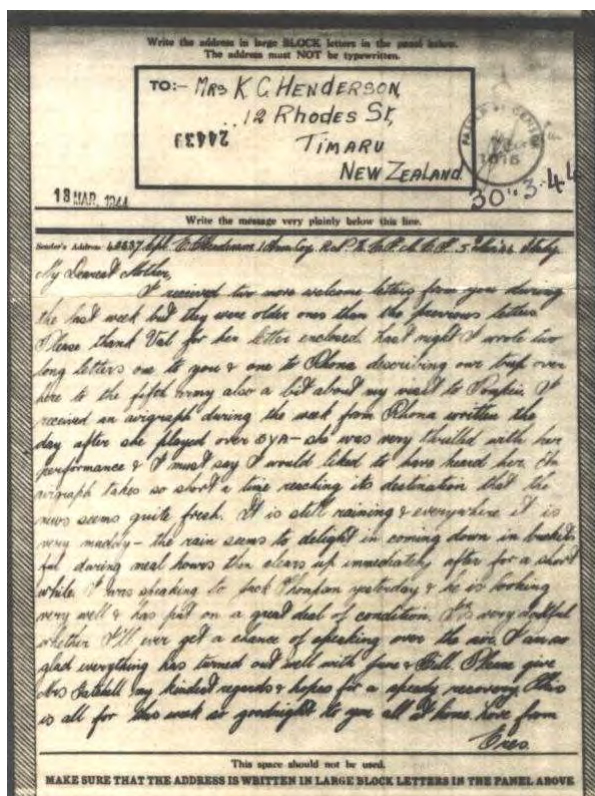 Write the address in large BLOCK letters in the panel below.
The address must NOT be typewritten.
TO:- MRS K C HENDERSON,
12 Rhodes St,
TIMARU
NEW ZEALAND
24439
1016
30.3.44
18 MAR. 1944
Write the message very plainly below this line.
Sender's Address Henderson 1 Amn Coy. Italy
My Dearest Mother,
I received two more welcome letters from you during
the last week but they were older ones than the previous letters.
Please thank Val for her letter enclosed. Last night I wrote two
long letters one to you & one to Rhona describing our trip over
here to the fifth army also a bit about my visit to Pompeii. I
received an airgraph during the week from Rhona written the
day after she played over 3YA - she was very thrilled with her
performance & I must say I would liked to have heard her. An
airgraph takes so short a time reaching its destination that the
news seems quite fresh. It is still raining & everywhere it is
very muddy - the rain seems to delight in coming down in buckets
ful during meal hours then clears up immediately after for a short
while. I was speaking to Jack Thompson yesterday & he is looking
very well & has put on a great deal of condition. It's very doubtful
whether I'll ever get a chance of speaking over the air. I am so
glad everything has turned out well with June & Bill. Please give
Mrs my kindest regards & hopes for a speedy recovery. This
is all for this week so goodnight to you all at home. Love from
This space should not be used.
MAKE SURE THAT THE ADDRESS IS WRITTEN IN LARGE BLOCK LETTERS IN THE PANEL ABOVE